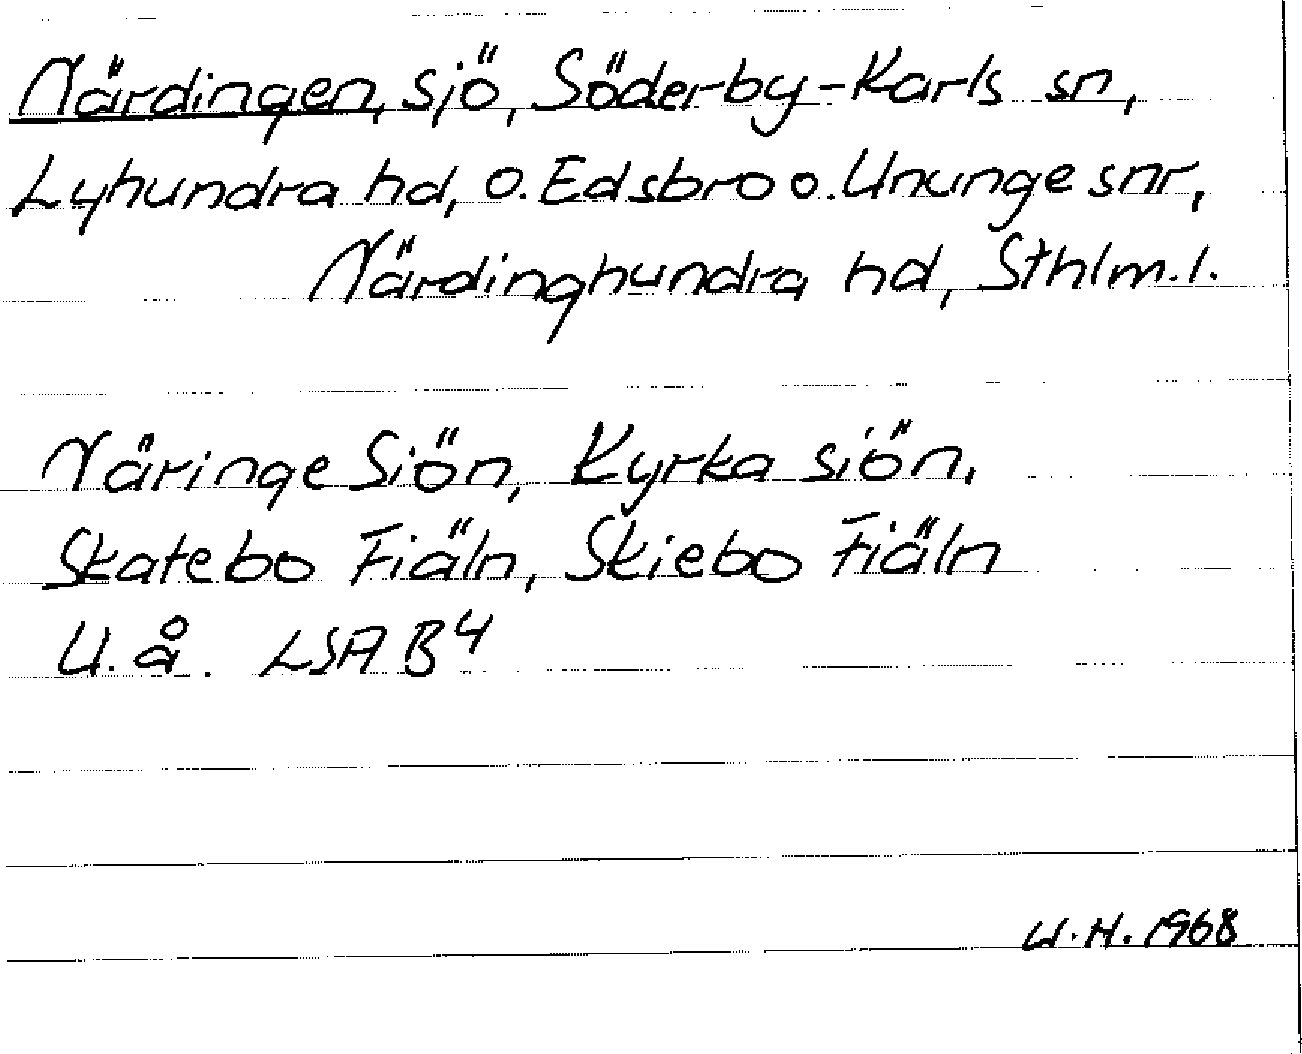 Närdingen, sjö, Söderby-Karls sn,
Lyhundra hd, o. Edsbro o. Ununge snr,
Närdinghundra hd, Sthlm. l.
Näringe Siön, Kyrka siön,
Skatebo Fiäln, Skiebo Fiäln
U. å. LSA B4
W. H. 1968